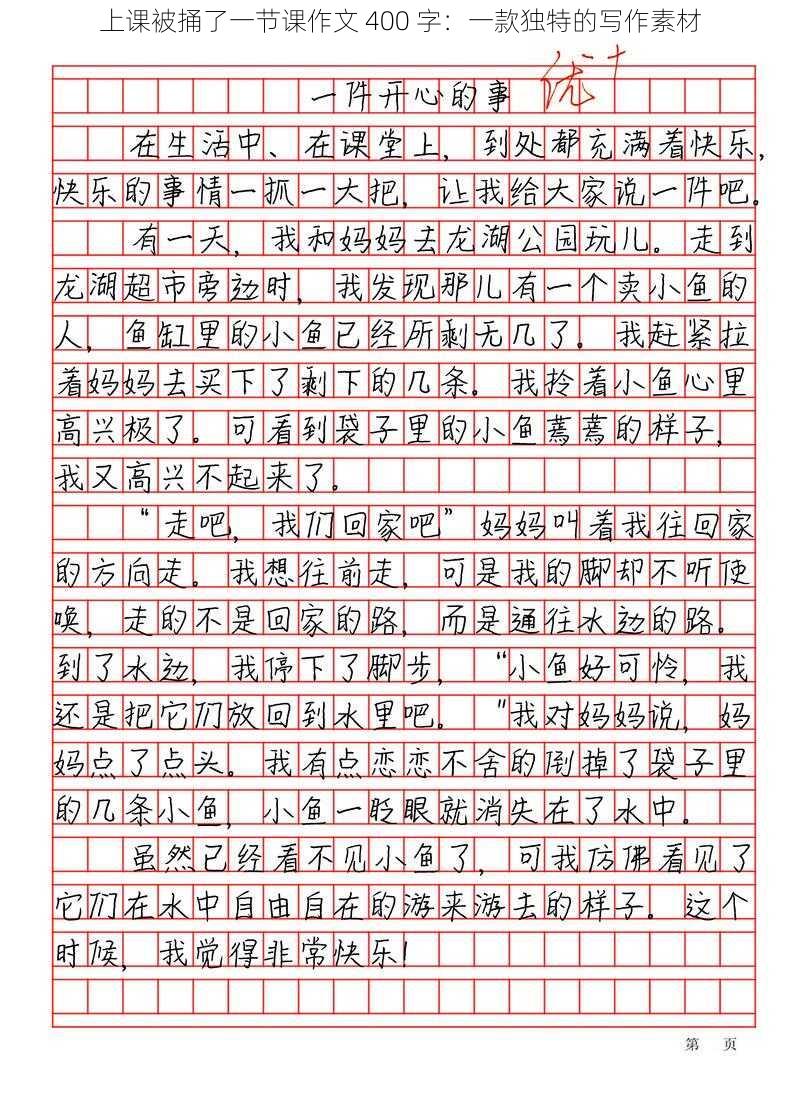 上课被捅了一节课作文 400 字：一款独特的写作素材
优+
一件开心的事
在生活中、在课堂上，到处都充满着快乐，
快乐的事情一抓一大把，让我给大家说一件吧。
有一天，我和妈妈去龙湖公园玩儿。走到
龙湖超市旁边时，我发现那儿有一个卖小鱼的
人，鱼缸里的小鱼已经所剩无几了。我赶紧拉
着妈妈去买下了剩下的几条。我拎着小鱼心里
高兴极了。可看到袋子里的小鱼蔫蔫的样子，
我又高兴不起来了。
“走吧，我们回家吧”妈妈叫着我往回家
的方向走。我想往前走，可是我的脚却不听使
唤，走的不是回家的路，而是通往水边的路。
到了水边，我停下了脚步，“小鱼好可怜，我
还是把它们放回到水里吧。”我对妈妈说，妈
妈点了点头。我有点恋恋不舍的倒掉了袋子里
的几条小鱼，小鱼一眨眼就消失在了水中。
虽然已经看不见小鱼了，可我仿佛看见了
它们在水中自由自在的游来游去的样子。这个
时候，我觉得非常快乐！
第 页